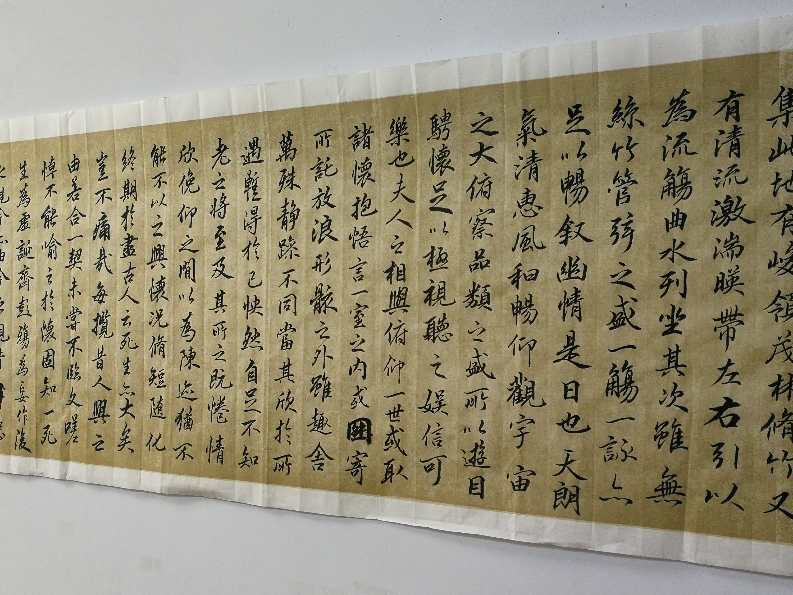 集此地有峻領茂林脩竹又
有清流激湍暎帶左右引以
為流觴曲水列坐其次雖無
絲竹管弦之盛一觴一詠亦
足以暢叙幽情是日也天朗
氣清惠風和暢仰觀宇宙
之大俯察品類之盛所以遊目
騁懷足以極視聽之娱信可
樂也夫人之相與俯仰一世或取
諸懷抱悟言一室之内或因寄
所託放浪形骸之外雖趣舍
萬殊静躁不同當其欣於所
遇蹔得於己怏然自足不知
老之將至及其所之既惓情
欣俛仰之間以為陳迹猶不
能不以之興懷况脩短隨化
終期於盡古人云死生亦大矣
豈不痛哉每攬昔人興之
由若合一契未嘗不臨文嗟
悼不能喻之於懷固知一死
生為虛誕齊彭殤為妄作後
之視今亦由今之視昔